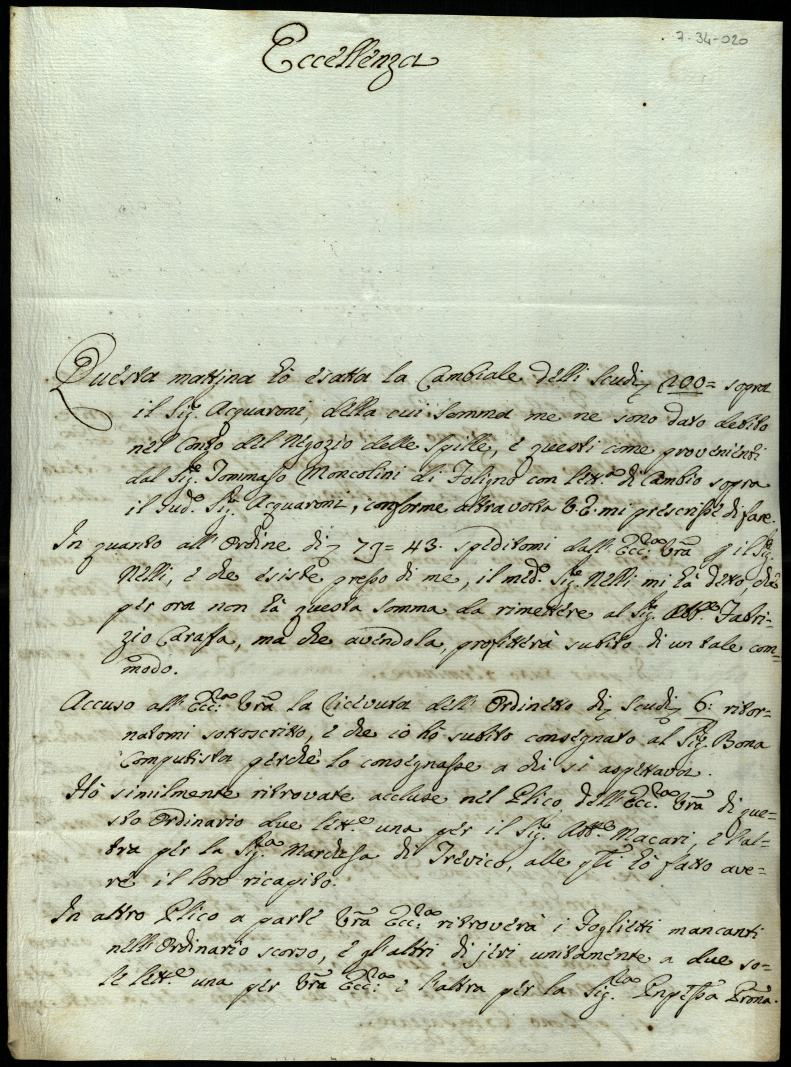 7-34-020
Eccellenza
Questa mattina hò esatta la Cambiale delli Scudi 200= sopra
il Sig.e Acquaroni, della cui somma me ne sono dato debito
nel Conto del Negozio delle Spille, e questi come provenienti
dal Sig.e Tommaso Moncolini di Foligno con lett.a di Cambio sopra
il sud.o Sig.e Acquaroni, conforme altra volta V.E. mi prescrisse di fare.
In quanto all'Ordine di 79=43. speditomi dall'Ecc.za Vrã p il Sig.e
Nelli, e che esiste presso di me, il med.o Sig.e Nelli mi hà detto, che
per ora non hà questa somma da rimettere al Sig.e Abb.e Fabri=
zio Caraffa, ma che avendola, profitterà subito di un tale com=
modo.
Accuso all'Ecc.za Vrã la ricevuta dell'Ordinetto di Scudi 6: ritor=
natomi sottoscritto, e che io hò subito consegnato al Sig.e Bona
Computista perche lo consegnasse a chi si aspettava.
Hò similmente ritrovate accluse nel Plico dell'Ecc.za Vrã di que=
sto Ordinario due lett.e una per il Sig.e Abb.e Macari, e l'al=
tra per la Sig.ra Marchesa di Trevico, alle qli hò fatto ave=
re il loro ricapito.
In altro Plico a parte Vrã Ecc.za ritroverà i Foglietti mancanti
nell'Ordinario scorso, e gl'altri di jeri unitamente a due so=
le lett.e una per Vrã Ecc.za e l'altra per la Sig.ra Pnpessa Prona.